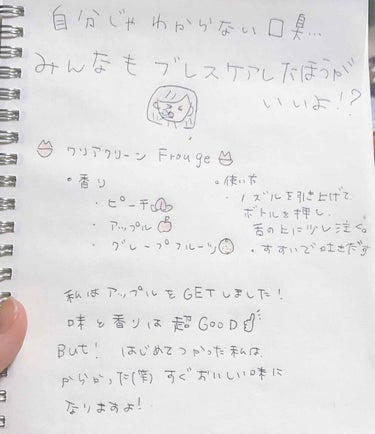 自分じゃわからない口臭…
みんなもブレスケアしたほうが
いいよ!?
クリアクリーン Frouge
•香り
・ピーチ
・アップル
・グレープフルーツ
•使い方
・ノズルを引き上げて
ボトルを押し、
舌の上に少し注ぐ。
・すすいで吐きだす
私はアップルをGETしました!
味と香りは超GOOD
But! はじめてつかった私は、
からかった(笑)すぐおいしい味に
なりますよ!